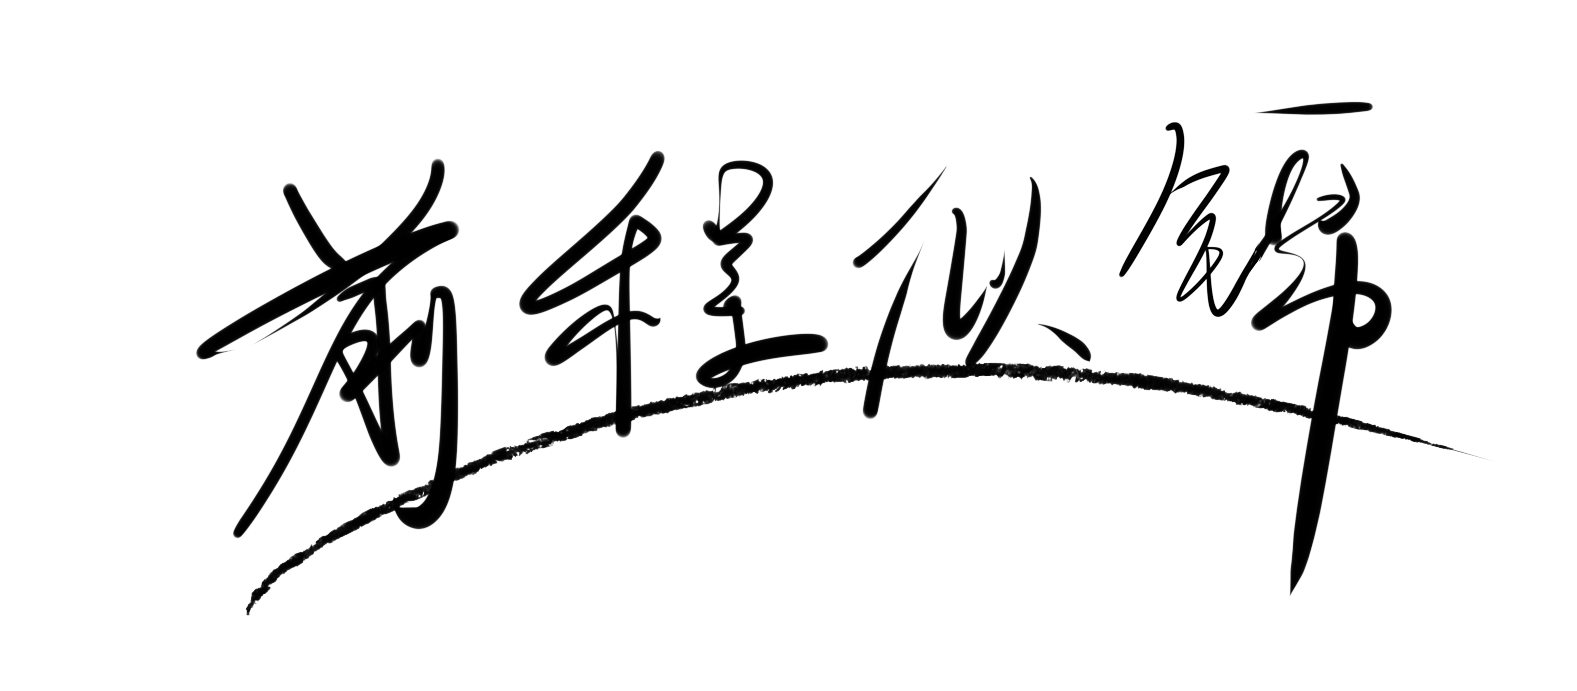 前程似锦